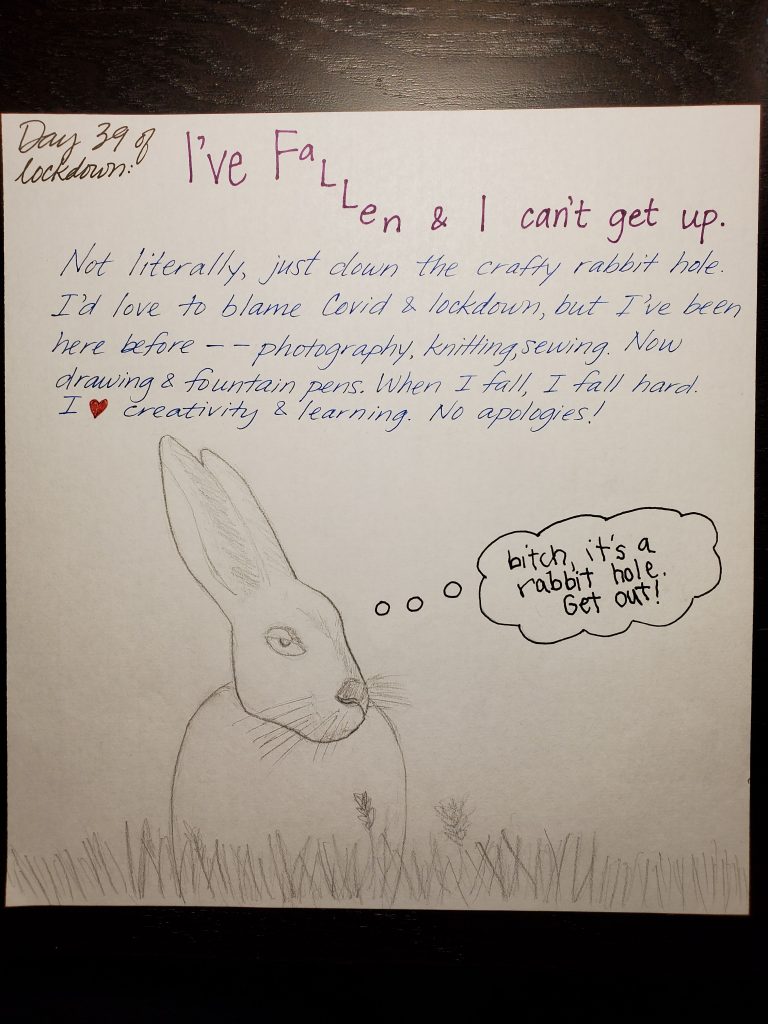 Day 39 of
lockdown:
I've FaLLen & I can't get up.
Not literally, just down the crafty rabbit hole.
I'd love to blame Covid & lockdown, but I've been
here before -- photography, knitting, sewing. Now
drawing & fountain pens. When I fall, I fall hard.
I ♥ creativity & learning. No apologies!
bitch, it's a
rabbit hole.
Get out!